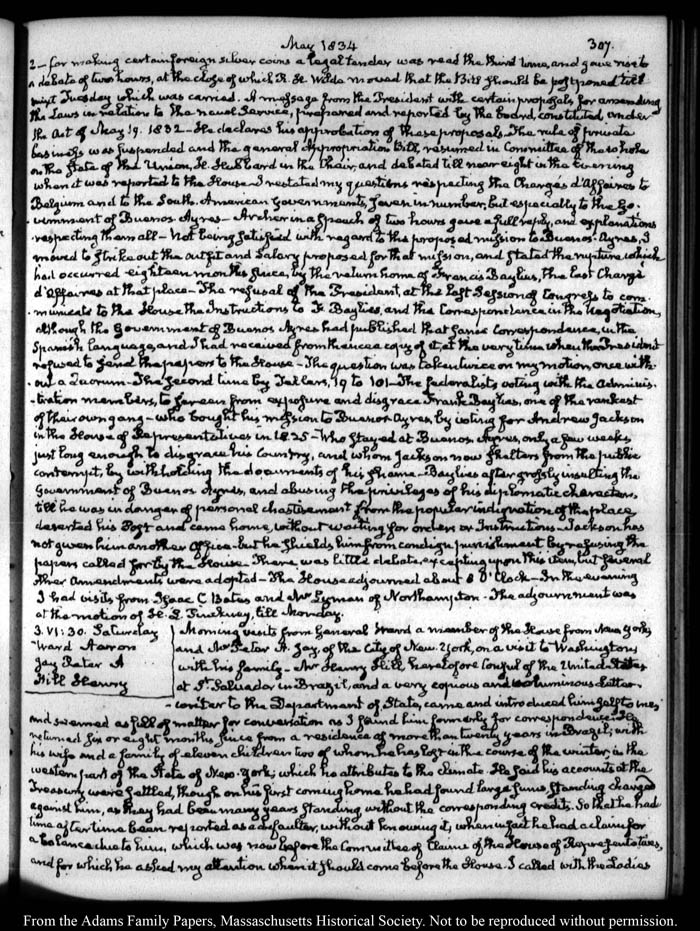 May 1834
307.
2 — for making certain foreign silver coins a legal tender was read the third time, and gave rise to
a debate of two hours, at the close of which R. H. Wilde moved that the Bill should be postponed till
next Tuesday which was carried. A message from the President with certain proposals for amending
the Laws in relation to the naval Service, prepared and reported by the board, constituted under
the Act of May 19. 1832 — He declares his approbation of these proposals. The rule of private
business was suspended and the general Appropriation Bill, resumed in Committee of the whole
on the State of the Union, H. Hubbard in the Chair, and debated till near eight in the Evening
when it was reported to the House. I restated my questions respecting the Chargés d'Affaires to
Belgium and to the South-American Governments, seven in number, but especially to the Go-
vernment of Buenos Ayres — Archer in a Speech of two hours gave a full reply, and explanations
respecting them all — Not being satisfied with regard to the proposed mission to Buenos-Ayres, I
moved to strike out the outfit and Salary proposed for that mission, and stated the rupture which
had occurred eighteen months since, by the return home of Francis Baylies, the last Chargé
d'affaires at that place — The refusal of the President, at the last Session of Congress to com-
municate to the House the Instructions to F. Baylies, and the Correspondence in the Negotiation,
although the Government of Buenos Ayres had published that same Correspondence, in the
Spanish language, and I had received from thence a copy of it, at the very time when the President
refused to send the papers to the House — The question was taken twice on my motion, once with-
out a Quorum — The second time by Tellers, 19 to 101 — The federalists voting with the Adminis-
tration members, to screen from exposure and disgrace Frank Baylies, one of the rankest
of their own gang — who bought his mission to Buenos Ayres, by voting for Andrew Jackson
in the House of Representatives in 1825 — Who stayed at Buenos Ayres, only a few weeks
just long enough to disgrace his Country, and whom Jackson now shelters from the public
contempt, by withholding the documents of his shame — Baylies after grossly insulting the
Government of Buenos Ayres, and abusing the privileges of his diplomatic character,
till he was in danger of personal chastisement from the popular indignation of the place
deserted his Post and came home, without waiting for orders or Instructions — Jackson has
not given him another Office — but he shields him from condign punishment by refusing the
papers called for by the House — There was little debate excepting upon this item, but several
other Amendments were adopted — The House adjourned about 8 O'Clock — In the evening
I had visits from Isaac C Bates and Mr Lyman of Northampton. The adjournment was
at the motion of H. L. Pinckney, till Monday.
3. VI: 30. Saturday
Ward Aaron
Jay Peter A
Hill Henry
Morning visits from General Ward a member of the House from New York,
and Mr Peter A. Jay, of the City of New-York, on a visit to Washington,
with his family — Mr Henry Hill heretofore Consul of the United States
at St. Salvador in Brazil, and a very copious and voluminous letter-
writer to the Department of State, came and introduced himself to me;
and seemed as full of matter for conversation as I found him formerly for correspondence. He
returned six or eight months since from a residence of more than twenty years in Brazil; with
his wife and a family of eleven children two of whom he has lost in the course of the winter, in the
western part of the State of New-York; which he attributes to the climate. He said his accounts at the
Treasury were settled, though on his first coming home he had found large sums standing charged
against him, as they had been many years standing without the corresponding credits. So that he had
time after time been reported as a defaulter, without knowing it, when in fact he had a claim for
a balance due to him, which was now before the Committee of Claims of the House of Representatives,
and for which he asked my attention when it should come before the House. I called with the Ladies
From the Adams Family Papers, Massachusetts Historical Society. Not to be reproduced without permission.